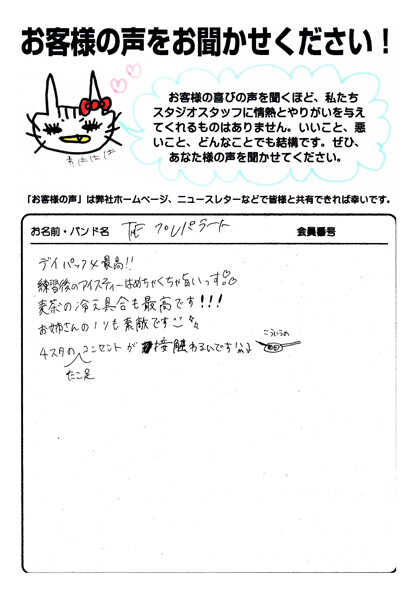 お客様の声をお聞かせください!
お客様の喜びの声を聞くほど、私たち
スタジオスタッフに情熱とやりがいを与え
てくれるものはありません。いいこと、悪
いこと、どんなことでも結構です。ぜひ、
あなた様の声を聞かせてください。
「お客様の声」は弊社ホームページ、ニュースレターなどで皆様と共有できれば幸いです。
お名前・バンド名 THE プレパラート 会員番号
デイパック4最高!!
練習後のアイスティーはめちゃくちゃ旨いっす
麦茶の冷え具合も最高です!!!
お姉さんのノリも素敵です
4スタのコンセントが接触わるいです
たこ足
こういうの